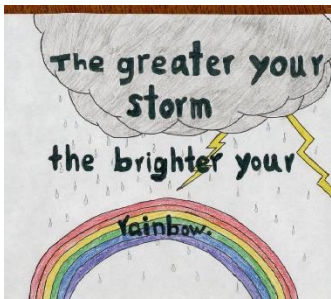 The greater your
storm
the brighter your
rainbow.